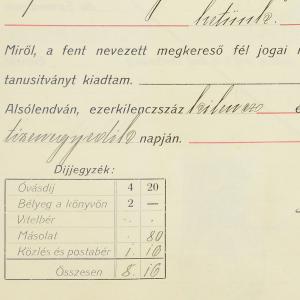 hetünk.
Miről, a fent nevezett megkereső fél jogai
tanusitványt kiadtam.
Alsólendván, ezerkilenczszáz kilencz
tizenegyedik napján.
Díjjegyzék:
Óvásdíj 4 20
Bélyeg a könyvön 2 —
Vitelbér . .
Másolat . 80
Közlés és postabér 1. 10
Összesen 8. 10